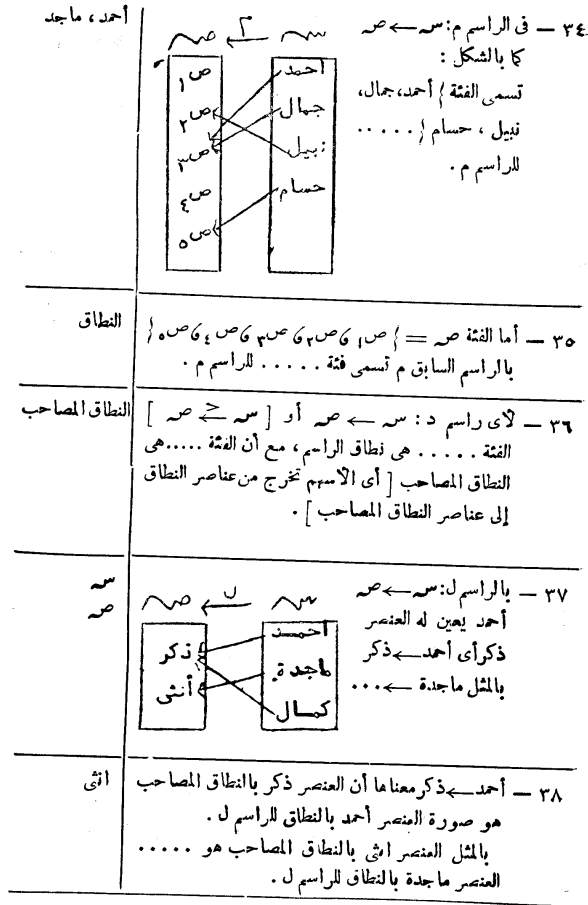 ٣٤ — فى الراسم م: سـ ← صـ
كما بالشكل :
تسمى الفئة { أحمد، جمال،
نبيل ، حسام } . . . . .
للراسم م .
أحمد ، ماجد
سـ م← صـ
أحمد
جمال
نبيل
حسام
ص١
ص٢
ص٣
ص٤
ص٥
٣٥ — أما الفئة صـ = { ص١ ، ص٢ ، ص٣ ، ص٤ ، ص٥ }
بالراسم السابق م تسمى فئة . . . . . للراسم م .
النطاق
٣٦ — لأى راسم د : سـ ← صـ أو [ سـ د← صـ ]
الفئة . . . . . هى نطاق الراسم ، مع أن الفئة .....هى
النطاق المصاحب [ أى الأسهم تخرج من عناصر النطاق
إلى عناصر النطاق المصاحب ] .
النطاق المصاحب
٣٧ — بالراسم ل: سـ ← صـ
أحمد يعين له العنصر
ذكر أى أحمد ← ذكر
بالمثل ماجدة ← ...
سـ
صـ
سـ ل← صـ
أحمـد
ماجدة
كمـال
ذكر
أنثى
٣٨ — أحمد ← ذكر معناها أن العنصر ذكر بالنطاق المصاحب
هو صورة العنصر أحمد بالنطاق للراسم ل .
بالمثل العنصر انثى بالنطاق المصاحب هو . . . . .
العنصر ماجدة بالنطاق للراسم ل .
انثى